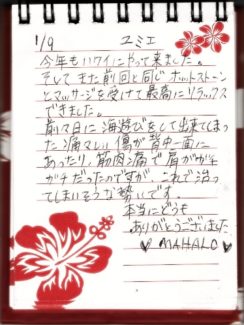 1/9 ユミエ
今年もハワイにやって来ました。
そしてまた前回と同じホットストーン
とマッサージを受けて最高にリラックス
できました。
前々日に海遊びをして出来てしまっ
た痛々しい傷が背中一面に
あったり、筋肉痛で肩がガチ
ガチだったのですが、これで治っ
てしまいそうな勢いです。
本当にどうも
ありがとうございました
♥ MAHALO ♥